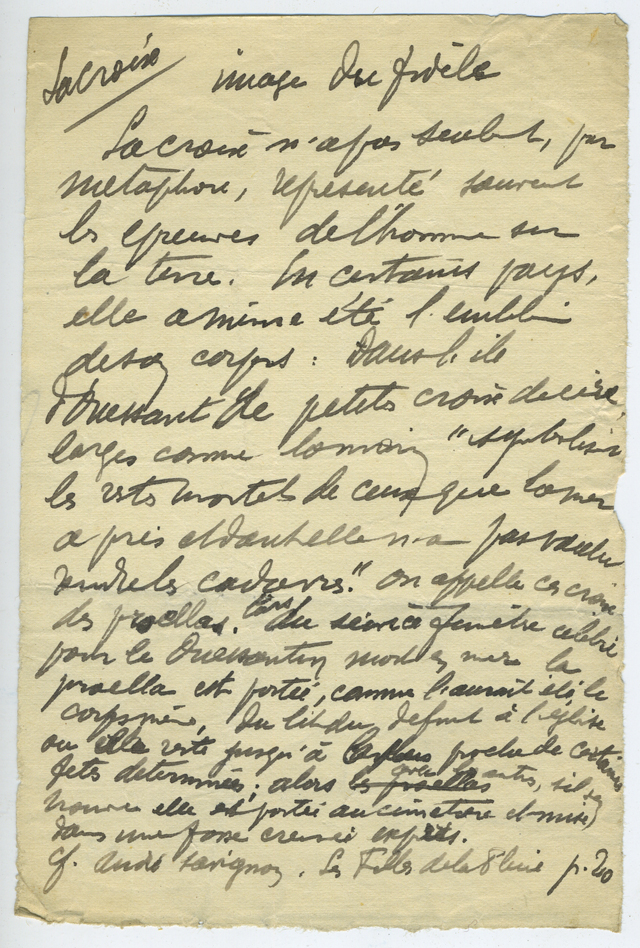 La croix image du fidèle
La croix n'a pas seulemt, par
métaphore, représenté souvent
les épreuves de l'homme sur
la terre. En certains pays,
elle a même été l'emblème
de son corps : Dans l'île
d'Ouessant de petites croix de cire,
larges comme la main "symbolisent
les restes mortels de ceux que la mer
a pris et dont elle n'a pas voulu
rendre les cadavres." On appelle ces croix
des proellas. Lors du service funèbre célébré
pour le Ouessantin mort en mer la
proella est portée, comme l'aurait été le
corps même, du lit du défunt à l'église
où elle reste jusqu'à la plus proche de certaines
fêtes déterminées ; alors les proellas avec autres, s'il s'en
trouve elle est portée au cimetière et mise
dans une fosse creusée exprès.
Cf. André Savignon. Les Filles de la Pluie p. 20